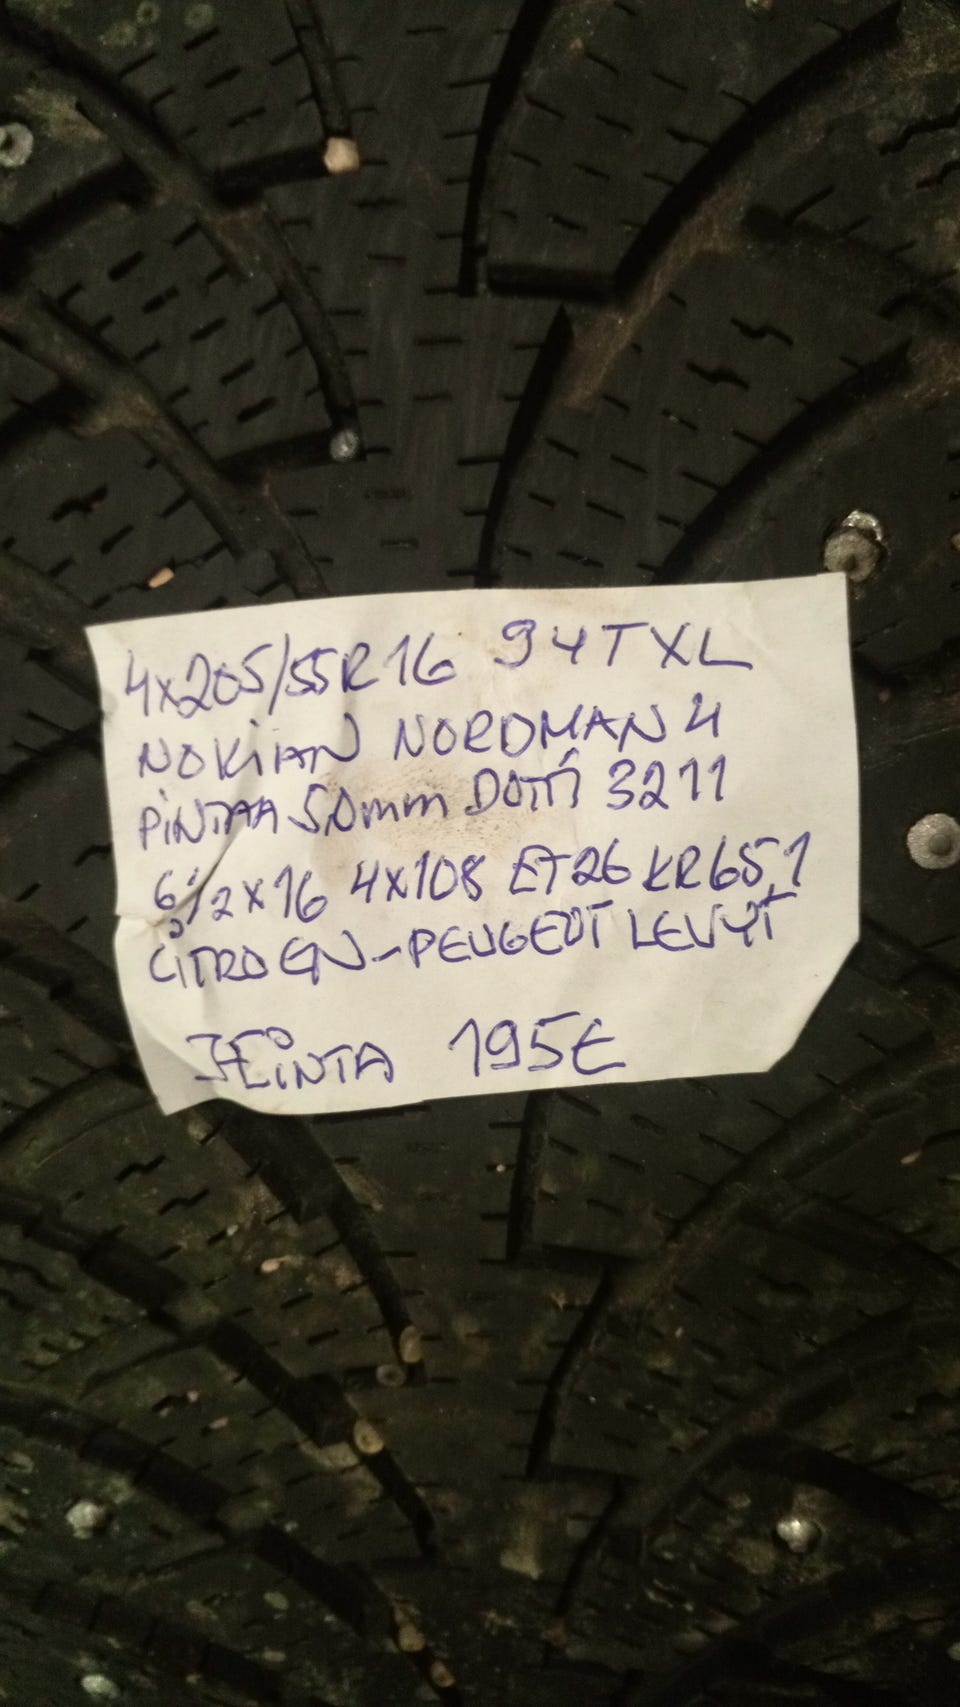 4x205/55R16 94T XL
NOKIAN NORDMAN 4
PINTAA 5,0mm DOTTI 3211
6 1/2 x 16 4x108 ET26 KR65,1
CITROEN-PEUGEOT LEVYT
HINTA 195€